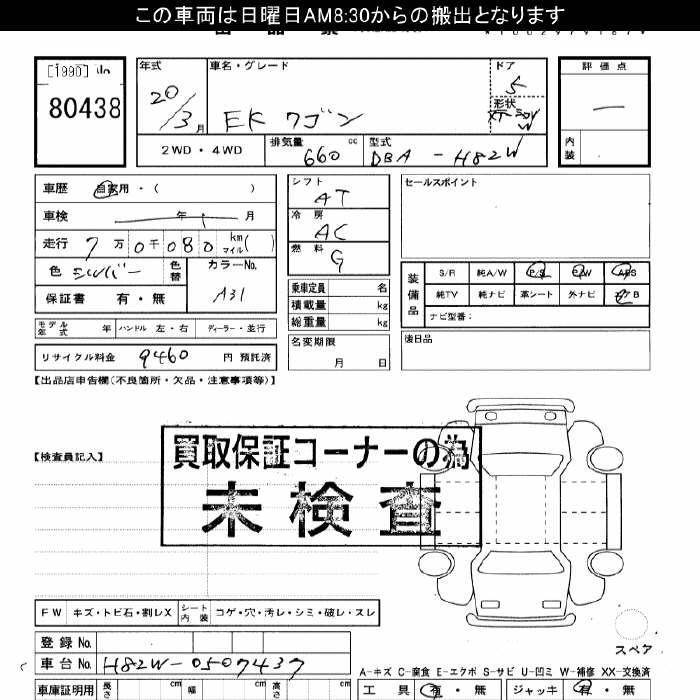 この車両は日曜日AM8:30からの搬出となります
[1990]
80438
年式 車名・グレード ドア 評価点
20/3月 EK ワゴン 5
形状
2WD・4WD 排気量 660 cc 型式 DBA-H82W
内装
車歴 自家用・( )
車検 年 月
走行 7万0千080 km マイル( )
色 シルバー 色替 カラーNo. A31
保証書 有・無
モデル年式 年 ハンドル 左・右 ディーラー・並行
リサイクル料金 9460 円 預託済
シフト AT
冷房 AC
燃料 G
乗車定員 名
積載量 kg
総重量 kg
名変期限
月 日
セールスポイント
装備品 S/R 純A/W P/S P/W ABS
純TV 純ナビ 革シート 外ナビ エアB
ナビ型番:
後日品
【出品店申告欄(不良箇所・欠品・注意事項等)】
【検査員記入】
買取保証コーナーの為
未検査
FW キズ・トビ石・割レX シート内装 コゲ・穴・汚レ・シミ・破レ・スレ
スペア
登録 No.
車台 No. H82W-0507437
A-キズ C-腐食 E-エクボ S-サビ U-凹ミ W-補修 XX-交換済
車庫証明用 長さ cm 幅 cm 高さ cm 工具 有・無 ジャッキ 有・無